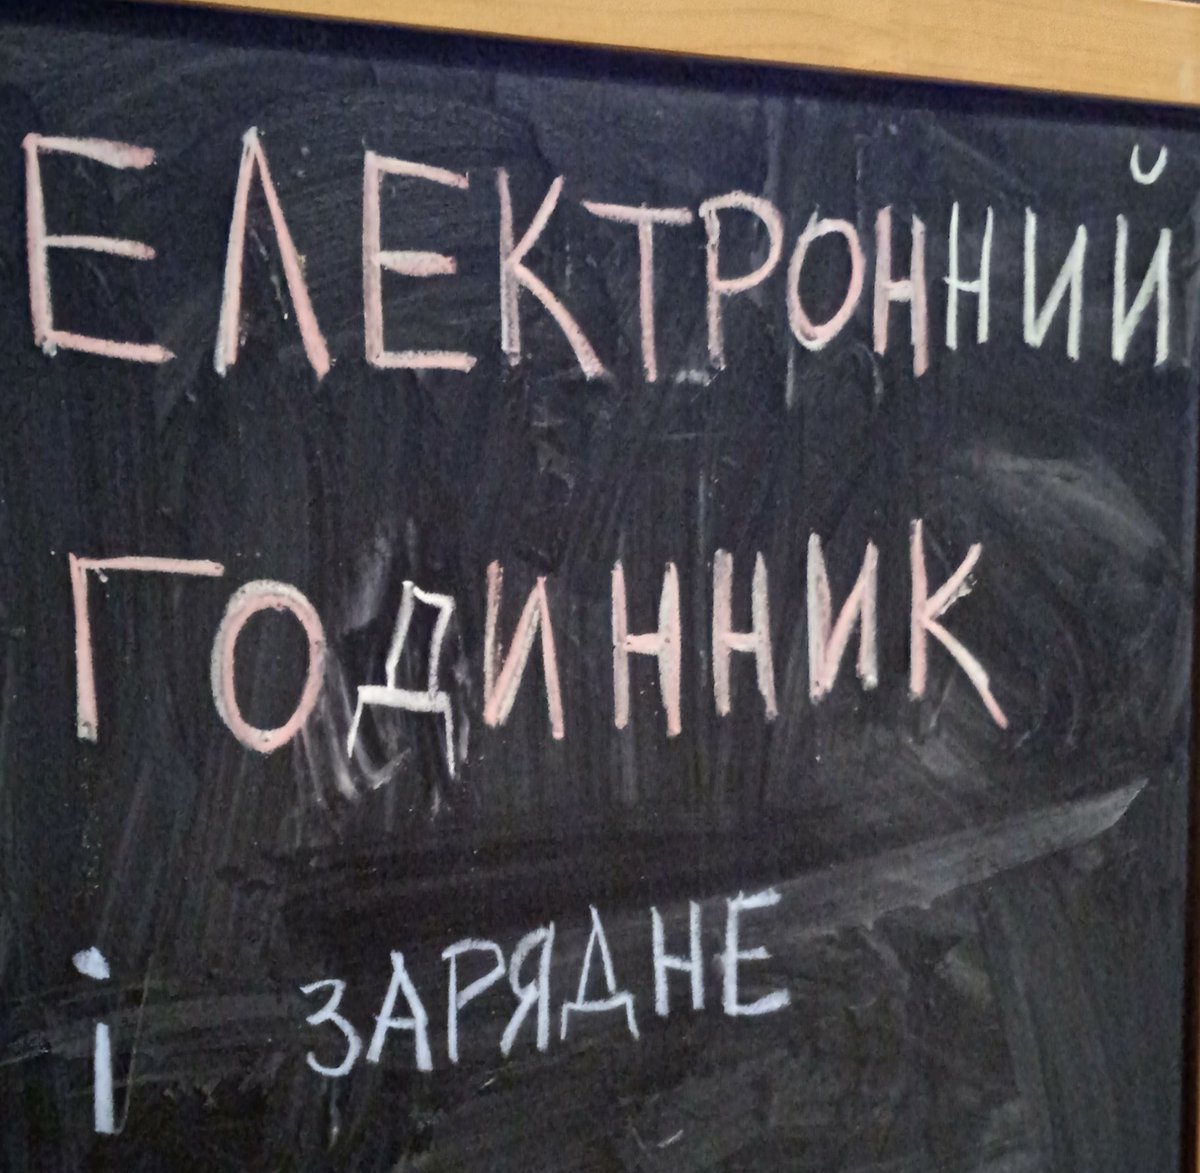 ЕЛЕКТРОННИЙ
ГОДИННИК
і ЗАРЯДНЕ